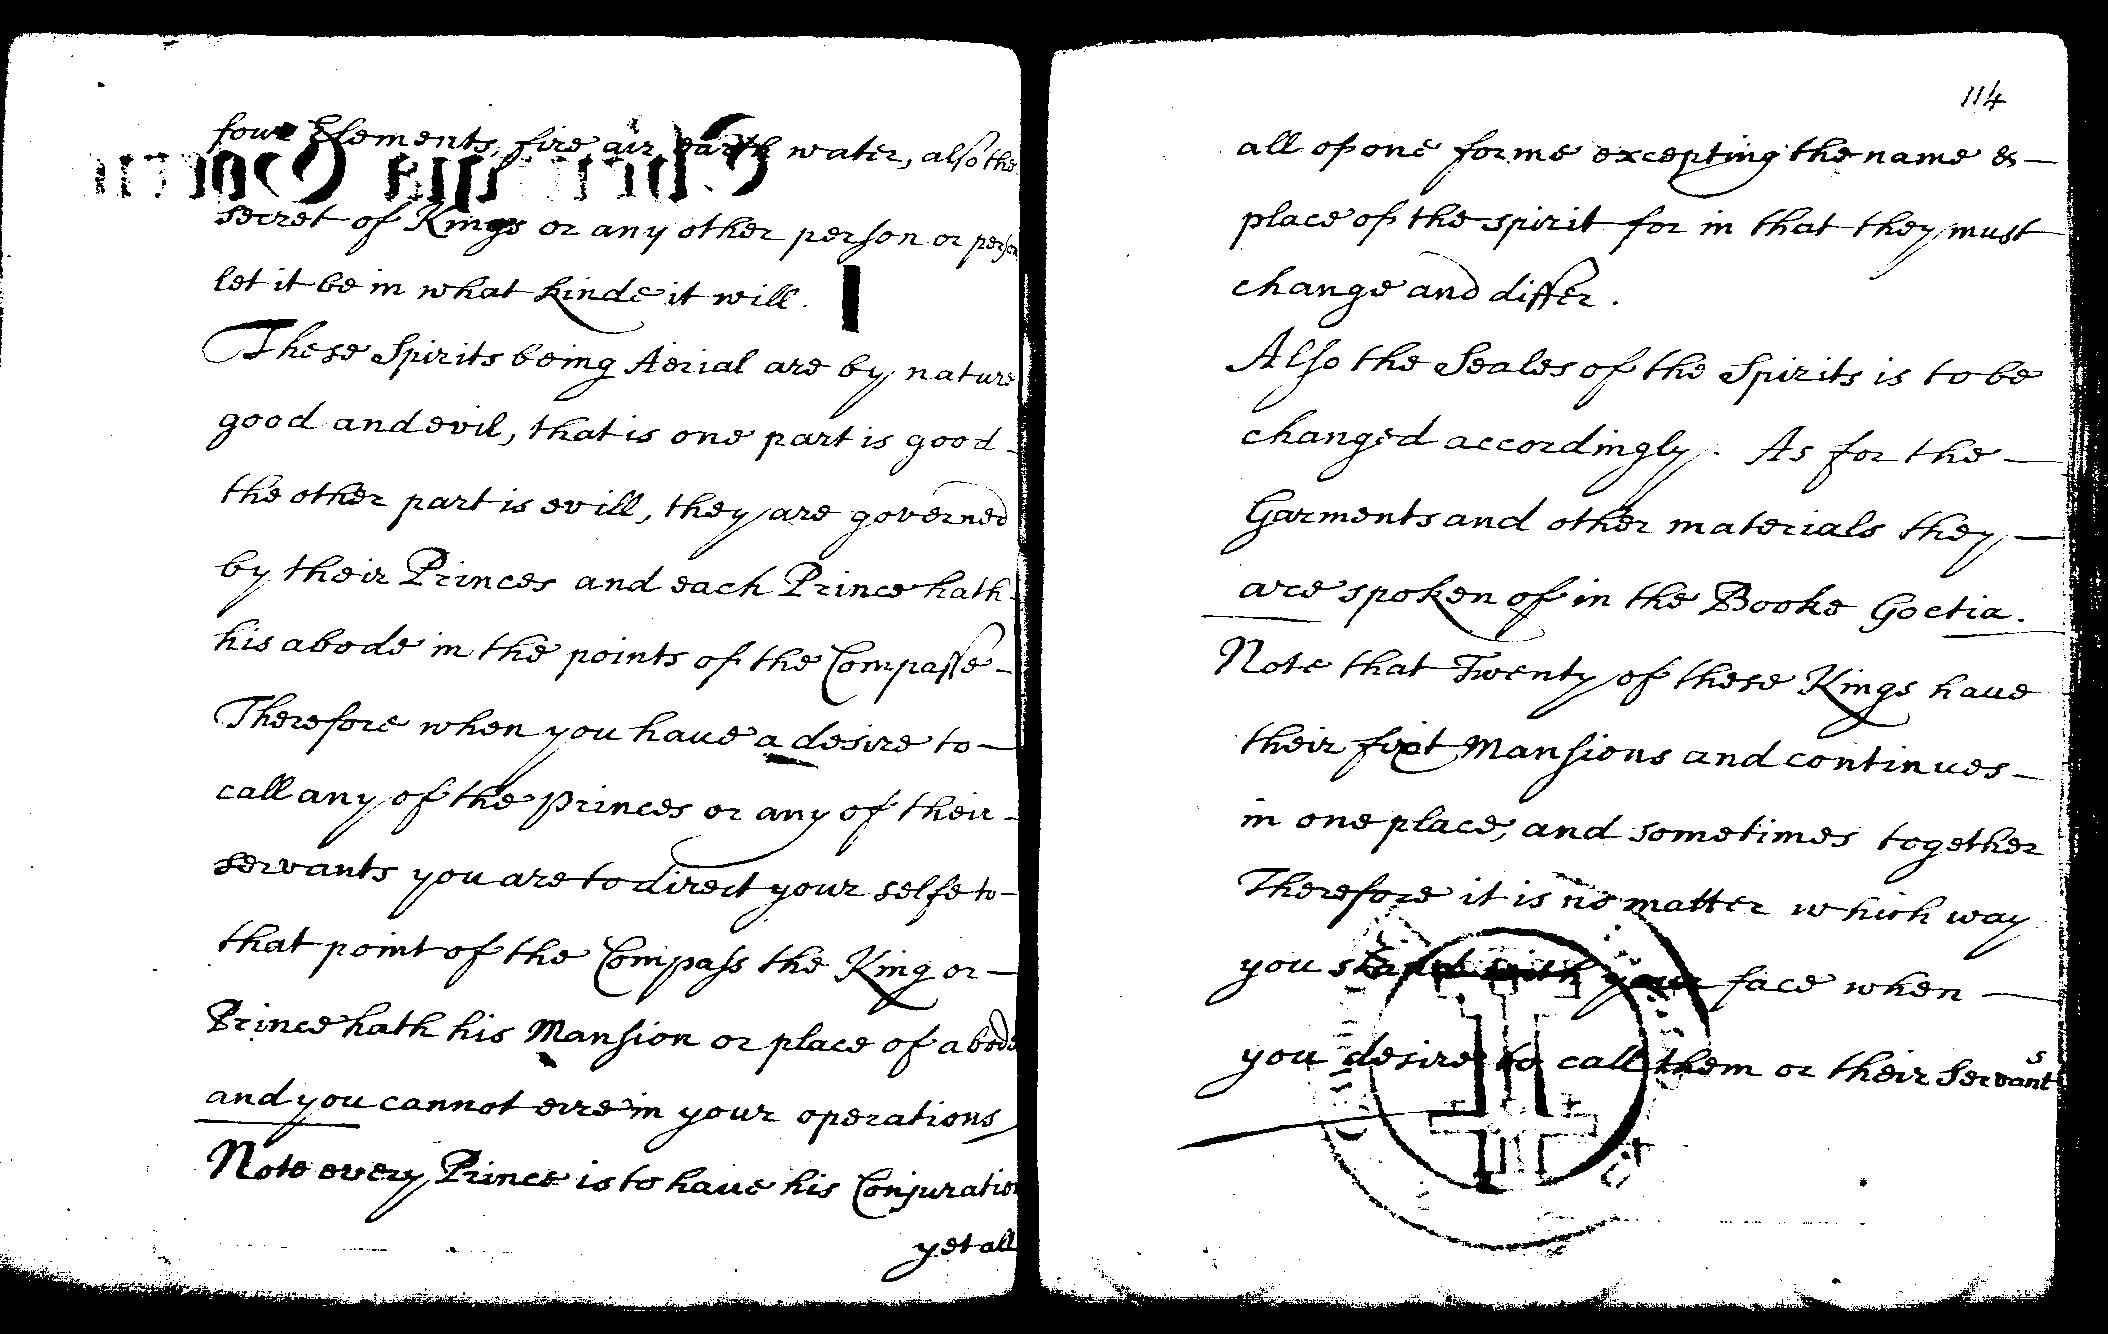 four Elements, fire air earth water, also the
secret of Kings or any other person or person
let it be in what kinde it will.
These Spirits being Aerial are by nature
good and evil, that is one part is good
the other part is evill, they are governed
by their Princes and each Prince hath
his abode in the points of the Compasse
Therefore when you have a desire to
call any of the princes or any of their
servants you are to direct your selfe to
that point of the Compass the King or
Prince hath his Mansion or place of abode
and you cannot erre in your operations
Note every Prince is to have his Conjuration
yet all
114
all of one forme excepting the name &
place of the spirit for in that they must
change and differ.
Also the Seales of the Spirits is to be
changed accordingly. As for the
Garments and other materials they
are spoken of in the Booke Goetia.
Note that Twenty of these Kings have
their fixt Mansions and continues
in one place, and sometimes together
Therefore it is no matter which way
you stand with your face when
you desire to call them or their servants